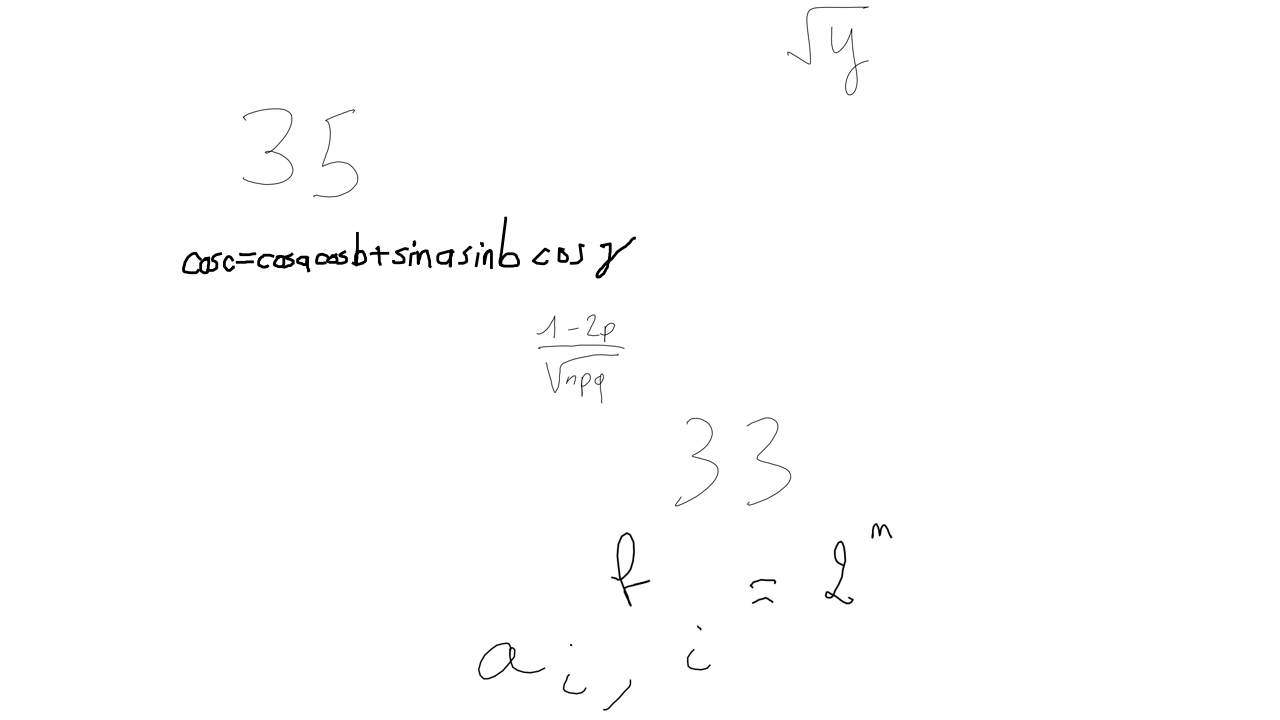 √y
35
cos c = cos a cos b + sin a sin b cos γ
(1-2p)/√(npq)
33
f = 2^n
a_i, i